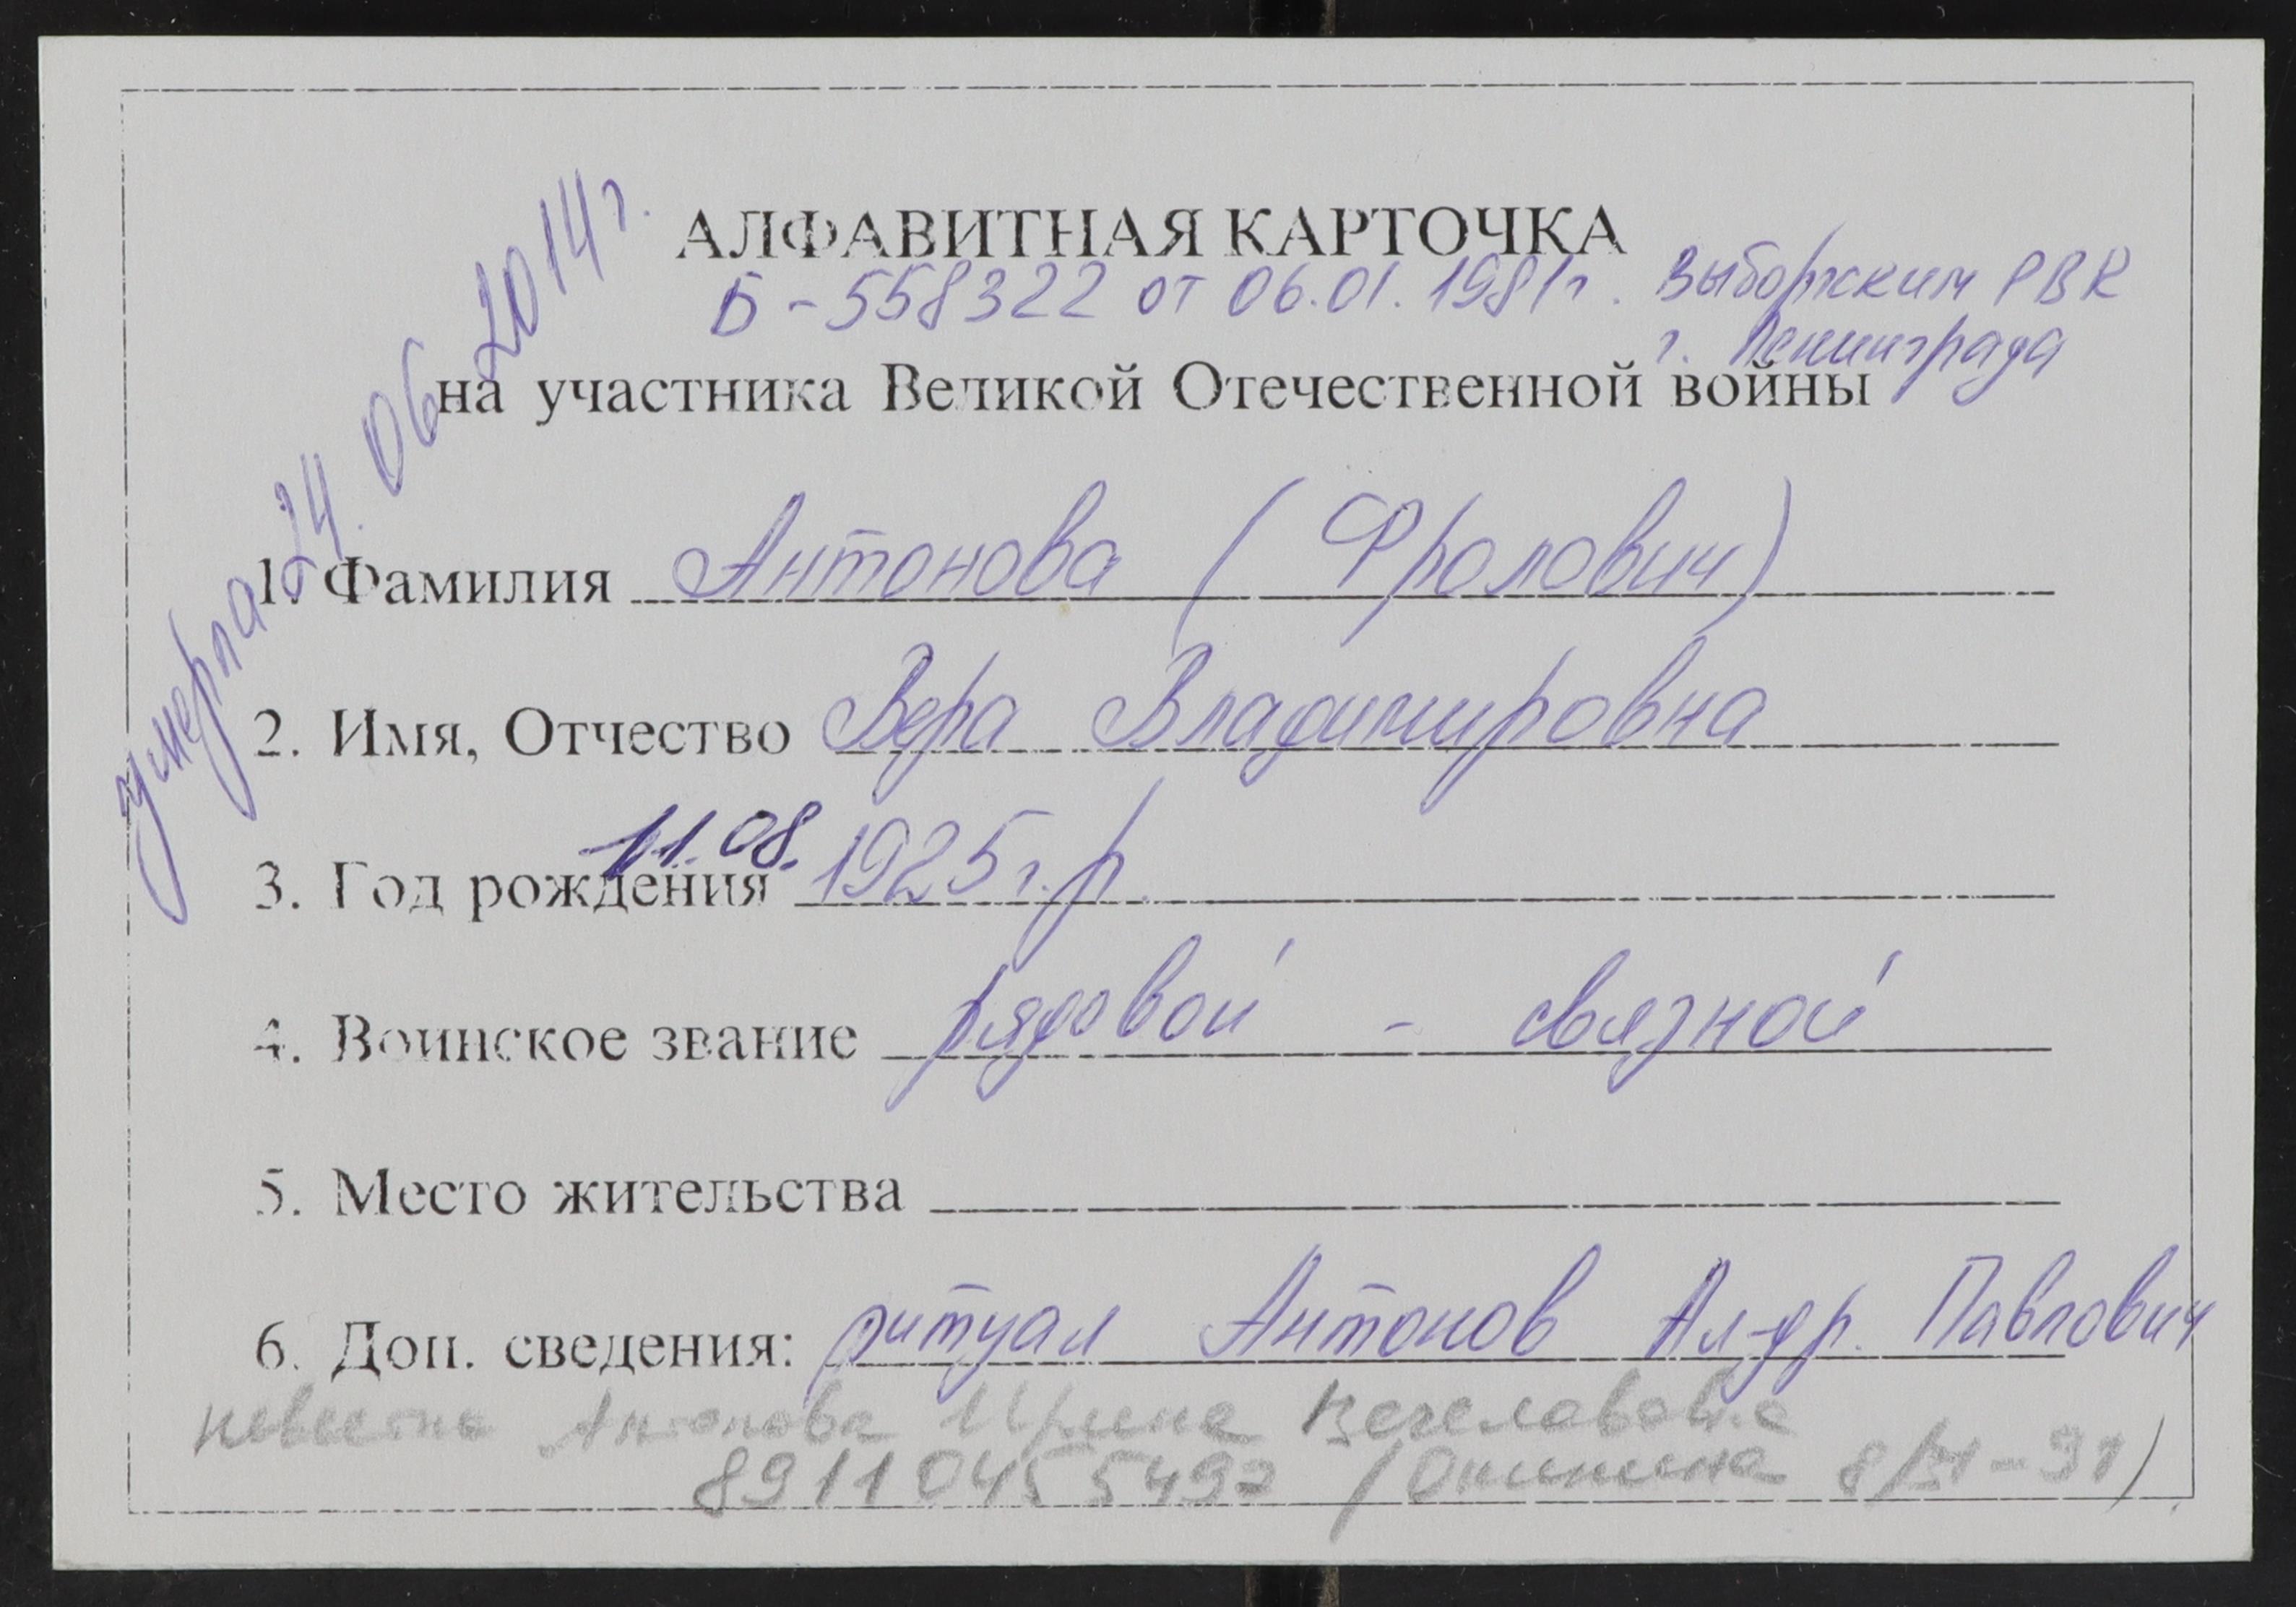 умерла 24.06.2014г.
АЛФАВИТНАЯ КАРТОЧКА
Б-558322 от 06.01.1981г. Выборжским РВК
г. Ленинграда
на участника Великой Отечественной войны
1. Фамилия Антонова (Фролович)
2. Имя, Отчество Вера Владимировна
11.08.
3. Год рождения 1925г.р.
4. Воинское звание рядовой - связной
5. Место жительства
6. Доп. сведения: ритуал Антонов Ал-др. Павлович
невестка Антонова Ирина
(Опипина